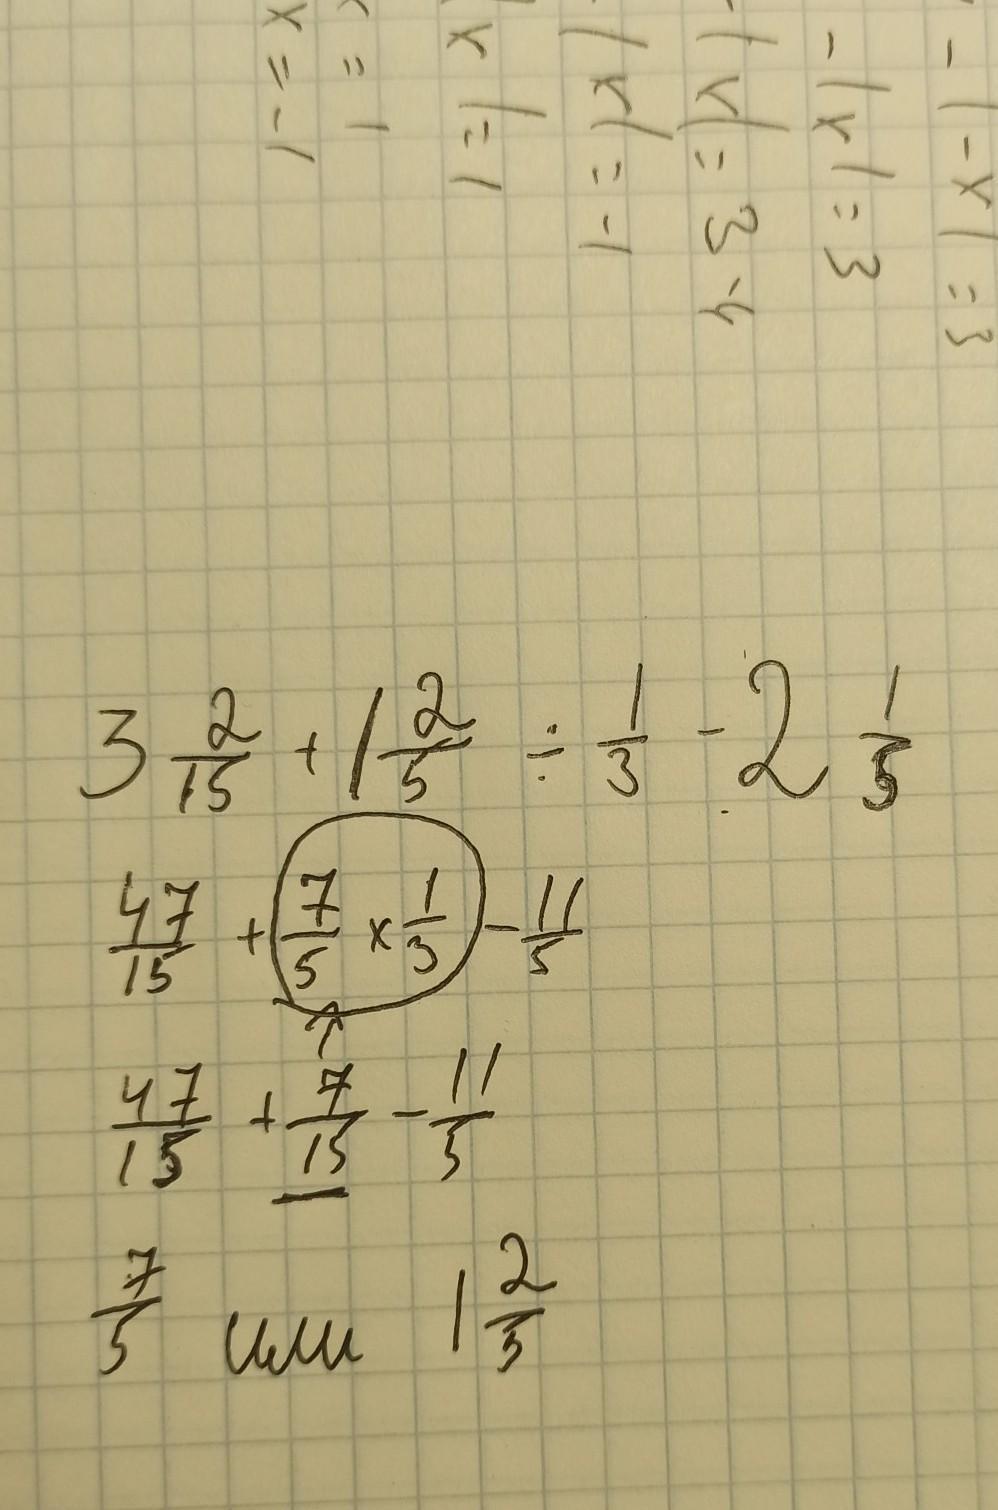 - |-x| = 3
- |x| = 3
- |x| = 3 - 4
- |x| = -1
|x| = 1
x = 1
x = -1
3 2/15 + 1 2/5 ÷ 1/3 - 2 1/5
47/15 + 7/5 × 1/3 - 11/5
↑
47/15 + 7/15 - 11/5
7/5 или 1 2/5